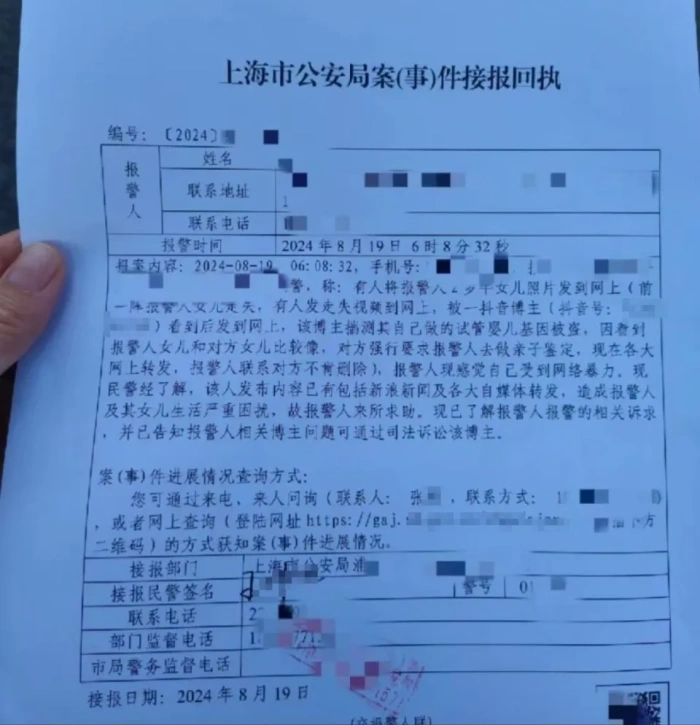 上海市公安局案(事)件接报回执
编号：〔2024〕
报警人
姓名
联系地址
1
联系电话
报警时间 2024年8月19日 6时8分32秒
报案内容：2024-08-19 06:08:32，手机号：
警，称：有人将报警人2岁半女儿照片发到网上（前
一阵报警人女儿走失，有人发走失视频到网上，被一抖音博主（抖音号：
）看到后发到网上，该博主揣测其自己做的试管婴儿基因被盗，因看到
报警人女儿和对方女儿比较像，对方强行要求报警人去做亲子鉴定，现在各大
网上转发，报警人联系对方不肯删除），报警人现感觉自己受到网络暴力。现
民警经了解，该人发布内容已有包括新浪新闻及各大自媒体转发，造成报警人
及其女儿生活严重困扰，故报警人来所求助。现已了解报警人报警的相关诉求
，并已告知报警人相关博主问题可通过司法诉讼该博主。
案(事)件进展情况查询方式：
您可通过来电、来人问询（联系人：张 ，联系方式：1 ）
，或者网上查询（登陆网址https://gaj.s 方
二维码）的方式获知案(事)件进展情况。
接报部门 上海市公安局
接报民警签名 警号 01
联系电话 2
部门监督电话 1
市局警务监督电话
接报日期：2024年8月19日